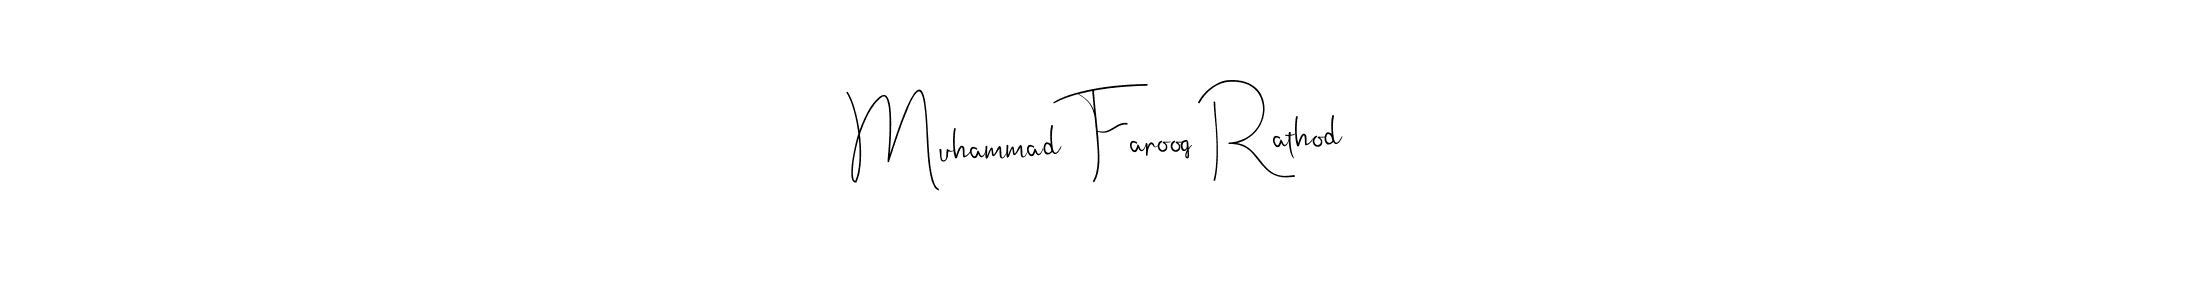 Muhammad Farooq Rathod